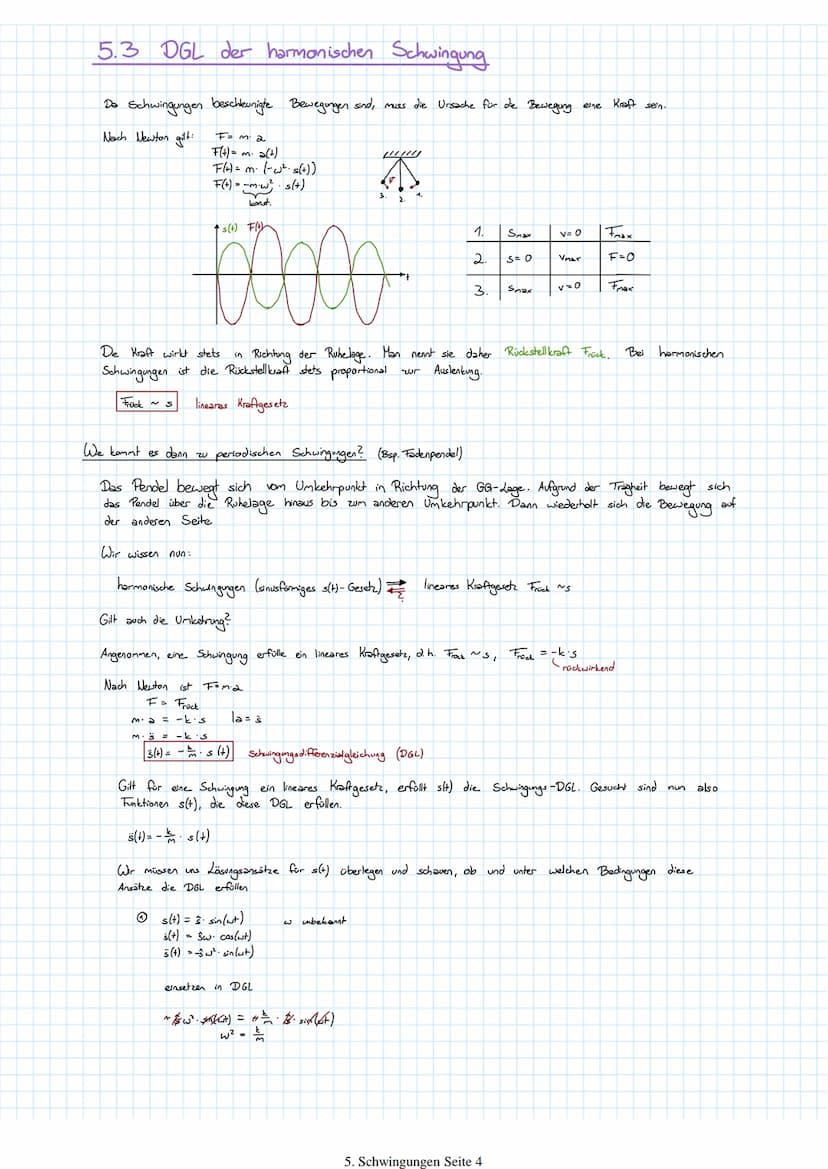 5.3 DGL der harmonischen Schwingung
Da Schwingungen beschleunigte Bewegungen sind, muss die Ursache für die Bewegung eine Kraft sein.
Nach Newton gilt: F = m · a
F(t) = m · a(t)
F(t) = m · (-ω² · s(t))
F(t) = -m·ω² · s(t)
konst.
3. 2. 1.
s(t) F(t)
t
1. Smax v=0 Fmax
2. s=0 vmax F=0
3. Smax v=0 Fmax
Die Kraft wirkt stets in Richtung der Ruhelage. Man nennt sie daher Rückstellkraft Frück. Bei harmonischen
Schwingungen ist die Rückstellkraft stets proportional zur Auslenkung.
Frück ~ s lineares Kraftgesetz
Wie kommt es dann zu periodischen Schwingungen? (Bsp. Fadenpendel)
Das Pendel bewegt sich vom Umkehrpunkt in Richtung der GG-Lage. Aufgrund der Trägheit bewegt sich
das Pendel über die Ruhelage hinaus bis zum anderen Umkehrpunkt. Dann wiederholt sich die Bewegung auf
der anderen Seite
Wir wissen nun:
harmonische Schwingungen (sinusförmiges s(t)-Gesetz) ⇄ lineares Kraftgesetz Frück ~s
?
Gilt auch die Umkehrung?
Angenommen, eine Schwingung erfülle ein lineares Kraftgesetz, d.h. Frück ~s, Frück = -k·s
rückwirkend
Nach Newton ist F=m·a
F = Frück
m · a = -k · s |a = s̈
m · s̈ = -k · s
s̈(t) = -k/m · s(t) Schwingungsdifferenzialgleichung (DGL)
Gilt für eine Schwingung ein lineares Kraftgesetz, erfüllt s(t) die Schwingungs-DGL. Gesucht sind nun also
Funktionen s(t), die diese DGL erfüllen.
s̈(t) = -k/m · s(t)
Wir müssen uns Lösungsansätze für s(t) überlegen und schauen, ob und unter welchen Bedingungen diese
Ansätze die DGL erfüllen
① s(t) = ŝ · sin(ωt) ω unbekannt
ṡ(t) = ŝω · cos(ωt)
s̈(t) = -ŝω² · sin(ωt)
einsetzen in DGL
-ŝω² · sin(ωt) = -k/m · ŝ · sin(ωt)
ω² = k/m
5. Schwingungen Seite 4